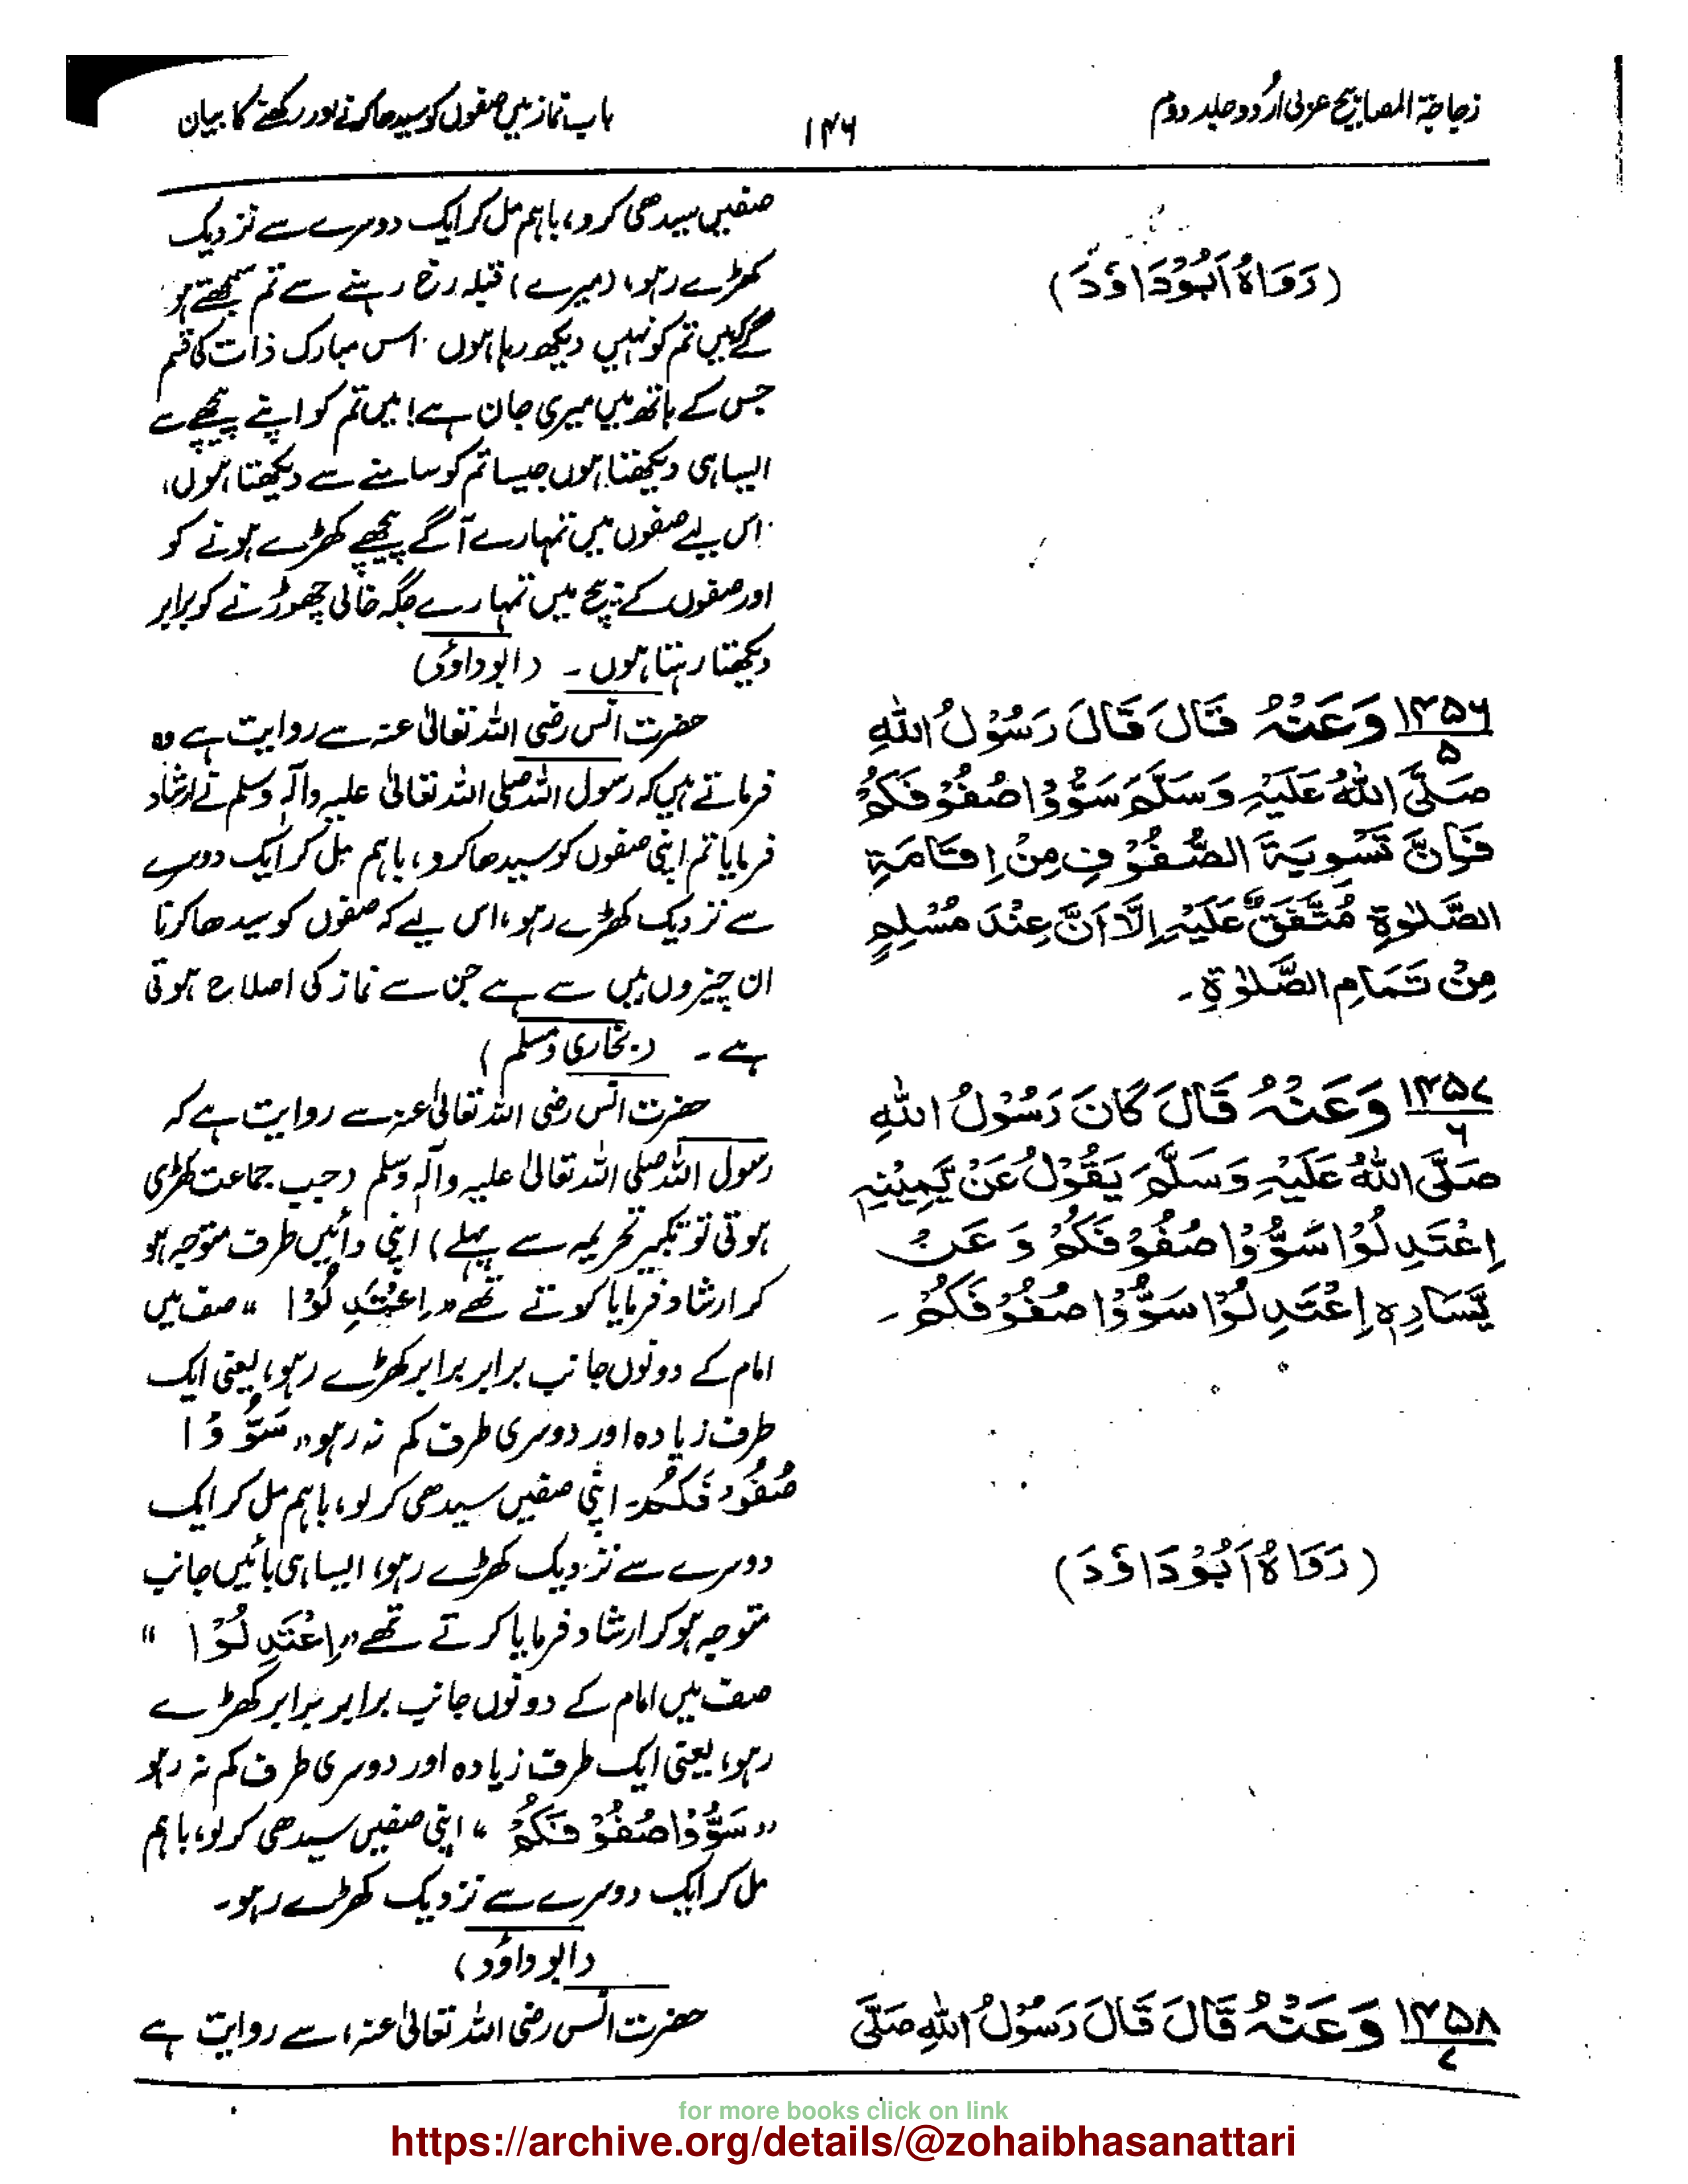 زجاجۃ المصابیح عربی اردو جلد دوم
۱۴۶
باب نماز میں صفوں کو سیدھا کرنے اور رکھنے کا بیان
(رَوَاہُ اَبُوْدَاوٗدَ)
صفیں سیدھی کرو، باہم مل کر ایک دوسرے سے نزدیک
کھڑے رہو، (میرے) قبلہ رخ رہنے سے تم سمجھتے ہو
گے کہ میں تم کو نہیں دیکھ رہا ہوں اس مبارک ذات کی قسم
جس کے ہاتھ میں میری جان ہے! میں تم کو اپنے پیچھے سے
ایسا ہی دیکھتا ہوں جیسا تم کو سامنے سے دیکھتا ہوں،
اس لیے صفوں میں تمہارے آگے پیچھے کھڑے ہونے کو
اور صفوں کے بیچ میں تمہارے جگہ خالی چھوڑنے کو برابر
دیکھتا رہتا ہوں۔ (ابوداؤد)
۱۳۵۶ وَعَنْہُ قَالَ قَالَ رَسُوْلُ اللّٰہِ
۵
صَلَّی اللّٰہُ عَلَیْہِ وَسَلَّمَ سَوُّوْا صُفُوْفَکُمْ
فَاِنَّ تَسْوِیَۃَ الصُّفُوْفِ مِنْ اِقَامَۃِ
الصَّلٰوۃِ مُتَّفَقٌ عَلَیْہِ اِلَّا اَنَّ عِنْدَ مُسْلِمٍ
مِنْ تَمَامِ الصَّلٰوۃِ۔
حضرت انس رضی اللہ تعالیٰ عنہ سے روایت ہے وہ
فرماتے ہیں کہ رسول اللہ صلی اللہ تعالیٰ علیہ وآلہٖ وسلم نے ارشاد
فرمایا تم اپنی صفوں کو سیدھا کرو، باہم مل کر ایک دوسرے
سے نزدیک کھڑے رہو، اس لیے کہ صفوں کو سیدھا کرنا
ان چیزوں میں سے ہے جن سے نماز کی اصلاح ہوتی
ہے۔ (بخاری و مسلم)
۱۳۵۷ وَعَنْہُ قَالَ کَانَ رَسُوْلُ اللّٰہِ
۶
صَلَّی اللّٰہُ عَلَیْہِ وَسَلَّمَ یَقُوْلُ عَنْ یَّمِیْنِہٖ
اِعْتَدِلُوْا سَوُّوْا صُفُوْفَکُمْ وَ عَنْ
یَّسَارِہٖ اِعْتَدِلُوْا سَوُّوْا صُفُوْفَکُمْ۔
(رَوَاہُ اَبُوْدَاوٗدَ)
حضرت انس رضی اللہ تعالیٰ عنہ سے روایت ہے کہ
رسول اللہ صلی اللہ تعالیٰ علیہ وآلہٖ وسلم (جب جماعت کھڑی
ہوتی تو تکبیر تحریمہ سے پہلے) اپنی دائیں طرف متوجہ ہو
کر ارشاد فرمایا کرتے تھے "اِعْتَدِلُوْا" صف میں
امام کے دونوں جانب برابر برابر کھڑے رہو، یعنی ایک
طرف زیادہ اور دوسری طرف کم نہ رہو "سَوُّوْا
صُفُوْفَکُمْ" اپنی صفیں سیدھی کر لو، باہم مل کر ایک
دوسرے سے نزدیک کھڑے رہو، ایسا ہی بائیں جانب
متوجہ ہو کر ارشاد فرمایا کرتے تھے "اِعْتَدِلُوْا"
صف میں امام کے دونوں جانب برابر برابر کھڑے
رہو، یعنی ایک طرف زیادہ اور دوسری طرف کم نہ رہو
"سَوُّوْا صُفُوْفَکُمْ" اپنی صفیں سیدھی کر لو، باہم
مل کر ایک دوسرے سے نزدیک کھڑے رہو۔
(ابوداؤد)
۱۳۵۸ وَعَنْہُ قَالَ قَالَ رَسُوْلُ اللّٰہِ صَلَّی
۷
حضرت انس رضی اللہ تعالیٰ عنہ، سے روایت ہے
for more books click on link
https://archive.org/details/@zohaibhasanattari